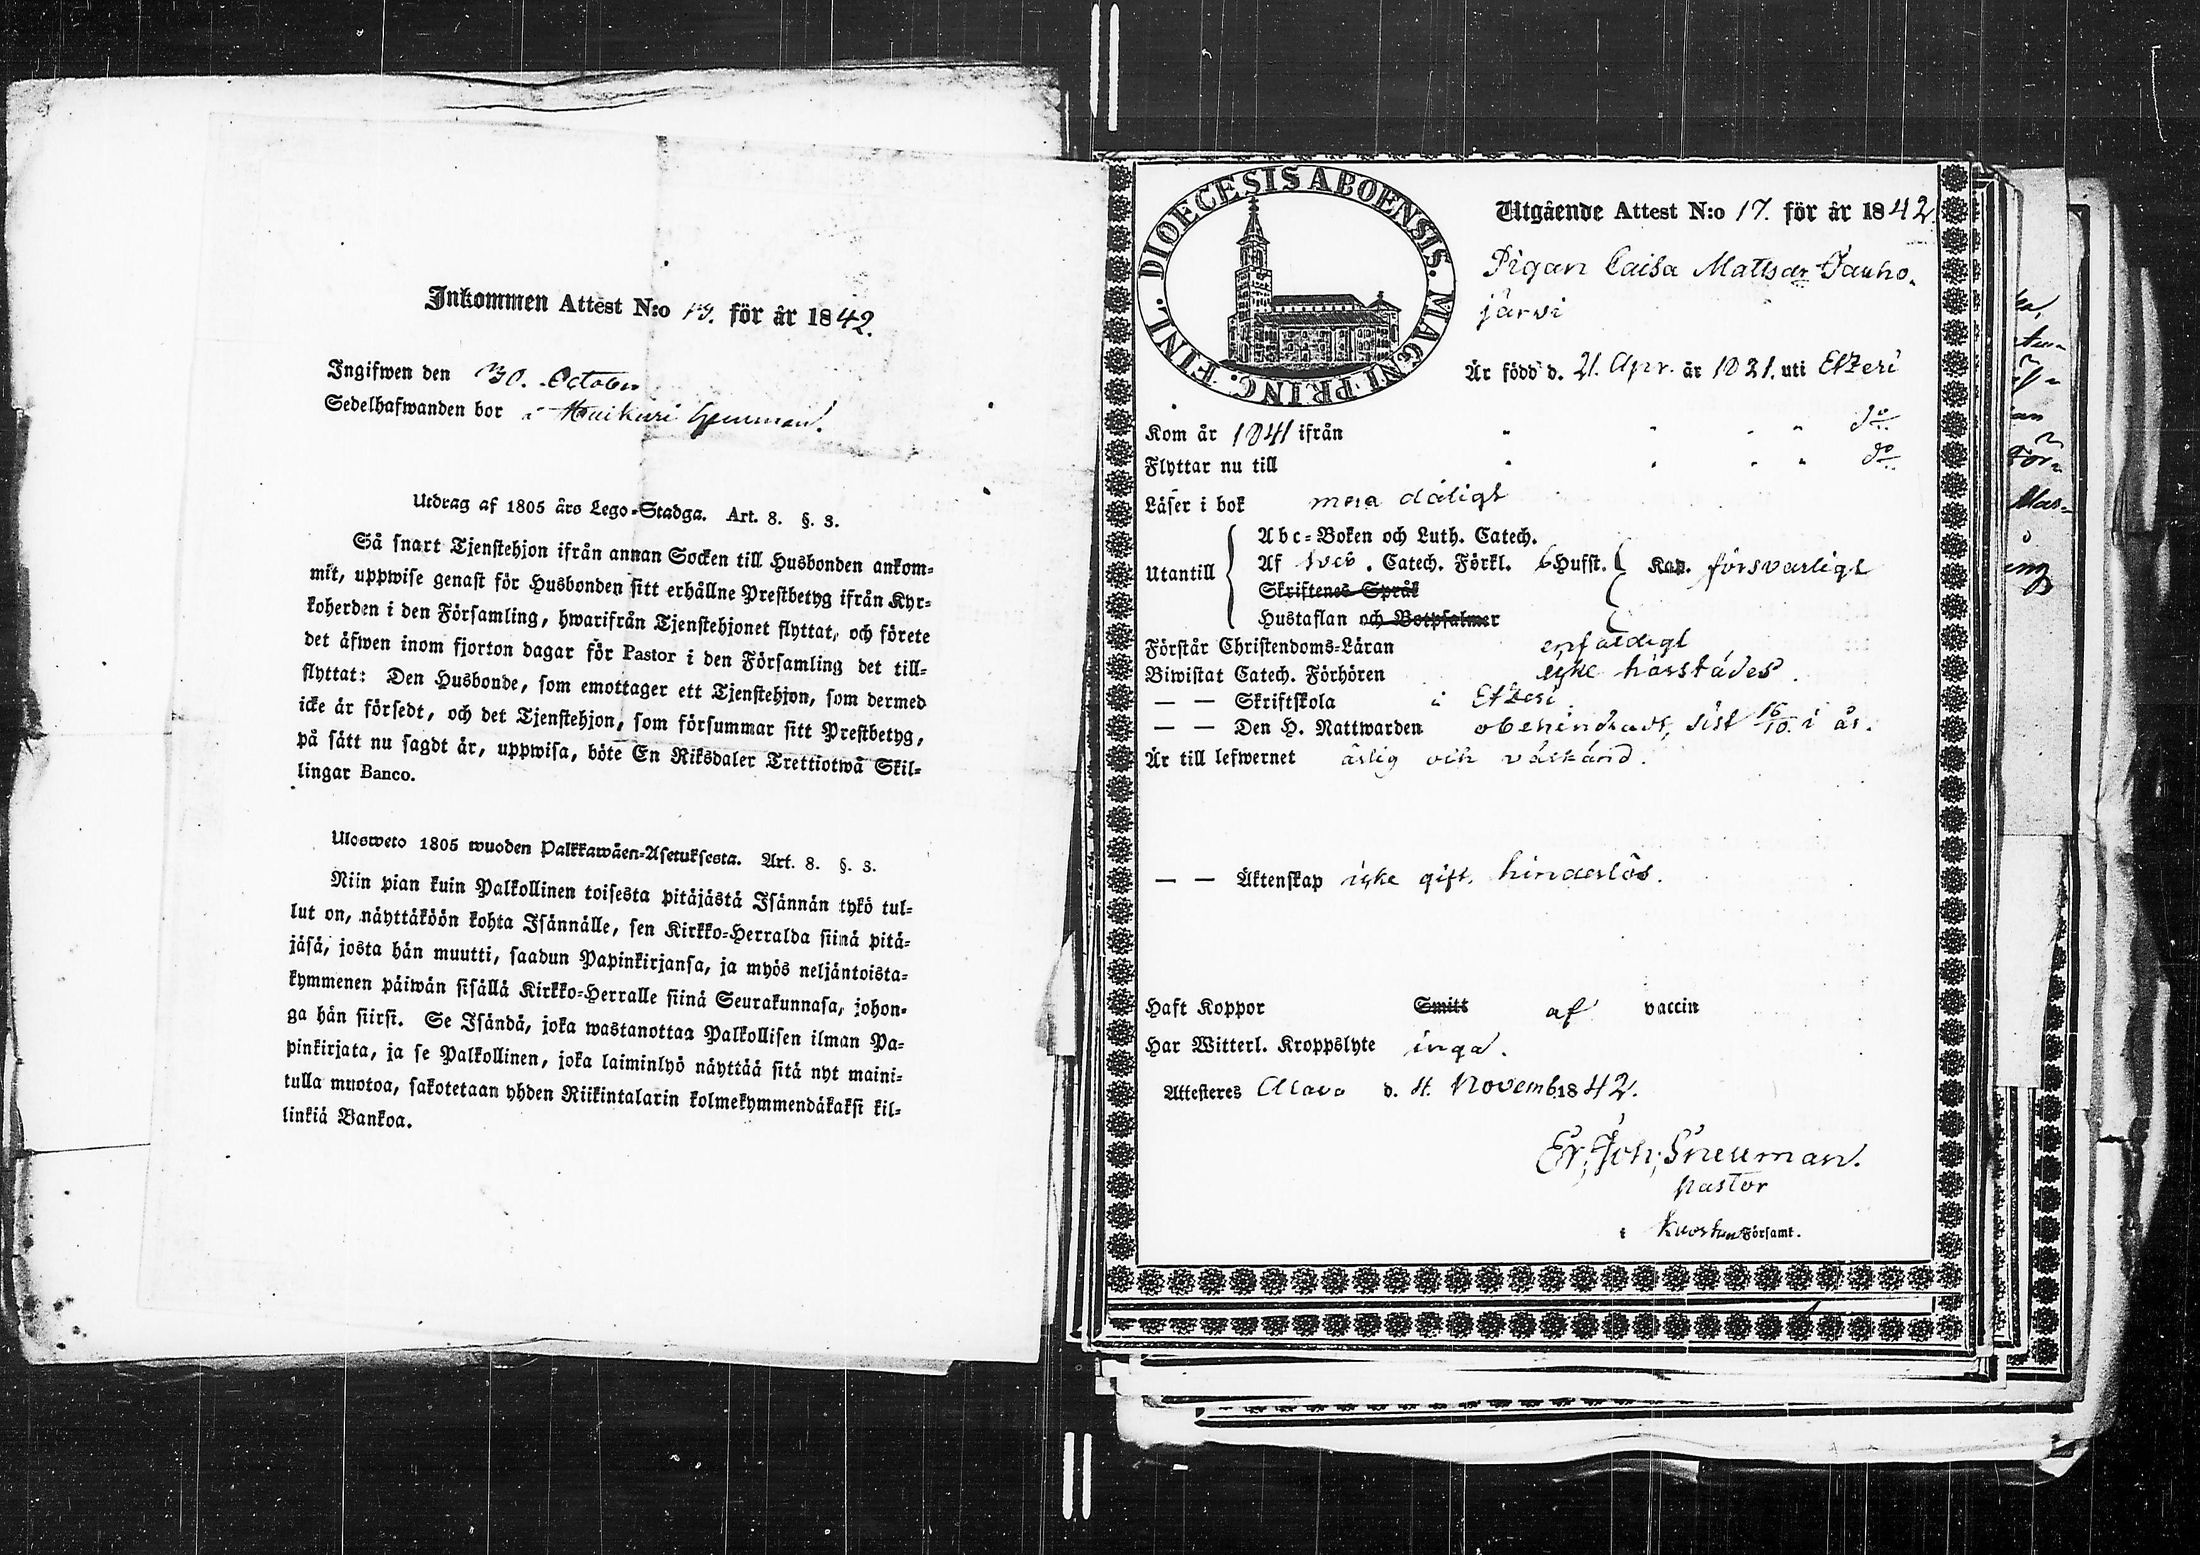 Inkommen Attest N:o 19. för år 1842.
Ingifwen den 30. October
Sedelhafwanden bor i Muikuri hemman.
Utdrag af 1805 års Lego-Stadga. Art. 8. §. 3.
Så snart Tjenstehjon ifrån annan Socken till Husbonden ankom-
mit, uppwise genast för Husbonden sitt erhållne Prestbetyg ifrån Kyr-
koherden i den Församling, hwarifrån Tjenstehjonet flyttat, och förete
det äfwen inom fjorton dagar för Pastor i den Församling det till-
flyttat: Den Husbonde, som emottager ett Tjenstehjon, som dermed
icke är försedt, och det Tjenstehjon, som försummar sitt Prestbetyg,
på sätt nu sagdt är, uppwisa, böte En Riksdaler Trettiotwå Skil-
lingar Banco.
Ulosweto 1805 wuoden Palkkawäen-Asetuksesta. Art. 8. §. 3.
Niin pian kuin Palkollinen toisesta pitäjästä Isännän tykö tul-
lut on, näyttäköön kohta Isännälle, sen Kirkko-Herralda siinä pitä-
jäsä, josta hän muutti, saadun Papinkirjansa, ja myös neljäntoista-
kymmenen päiwän sisällä Kirkko-Herralle siinä Seurakunnasa, johon-
ga hän siirsi. Se Isändä, joka wastanottaa Palkollisen ilman Pa-
pinkirjata, ja se Palkollinen, joka laiminlyö näyttää sitä nyt maini-
tulla muotoa, sakotetaan yhden Riikintalarin kolmekymmendäkaksi kil-
linkiä Bankoa.
DIOECESIS ABOENSIS. MAGNI PRINC. FINL.
Utgående Attest N:o 17. för år 1842.
Pigan Caisa Mattsdr Jauho-
järvi
Är född d. 21. Apr. år 1821. uti Etzeri
Kom år 1841 ifrån do
Flyttar nu till do
Läser i bok mera dåligt
Utantill
Abc-Boken och Luth. Catech.
Af Sveb. Catech. Förkl. 6 Hufst. Kap. försvarligt
Skriftenes Språk
Hustaflan och Botpsalmer
Förstår Christendoms-Läran enfaldigt
Biwistat Catech. Förhören icke härstädes.
— — Skriftskola i Etzeri
— — Den H. Nattwarden obehindradt, sist 16/10. i år.
Är till lefwernet ärlig och välkänd.
— — Äktenskap icke gift, hinderlös.
Haft Koppor Smitt af vaccin
Har Witterl. Kroppslyte inga.
Attesteres Alavo d. 4. Novemb. 1842.
Er. Joh. Sneuman.
Pastor
i Kuortane Församl.